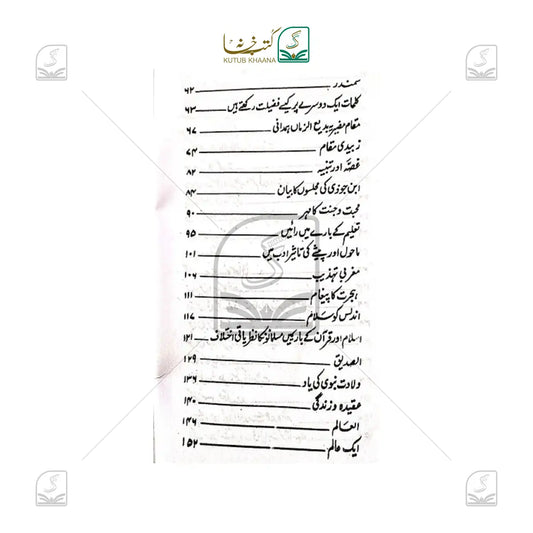 کتب خانہ
KUTUB KHAANA
سمندر ۶۲
کلمات ایک دوسرے پر کیسے فضیلت رکھتے ہیں ۶۳
مقام مضیریہ بدیع الزماں ہمدانی ۶۷
زبیدی مقام ۷۴
غصّہ اور تنبیہ ۸۲
ابن جوزی کی مجلسوں کا بیان ۸۴
محبت و جنت کا مہر ۹۰
تعلیم کے بارے میں رائیں ۹۵
ماحول اور پیشے کی تاثیر ادب میں ۱۰۱
مغربی تہذیب ۱۰۶
ہجرت کا پیغام ۱۱۱
اندلس کو سلام ۱۱۷
اسلام اور قرآن کے بارے میں مسلمانوں کا نظریاتی اختلاف ۱۲۱
الصدیق ۱۲۹
ولادت نبوی کی یاد ۱۳۶
عقیدہ و زندگی ۱۴۰
العالم ۱۴۶
ایک عالم ۱۵۲